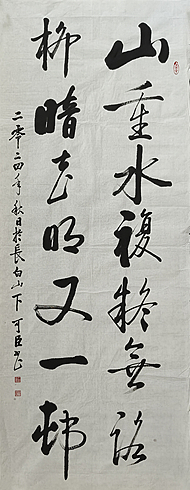 山重水複疑無路
柳暗花明又一邨
二零二四年秋日於長白山下可臣書